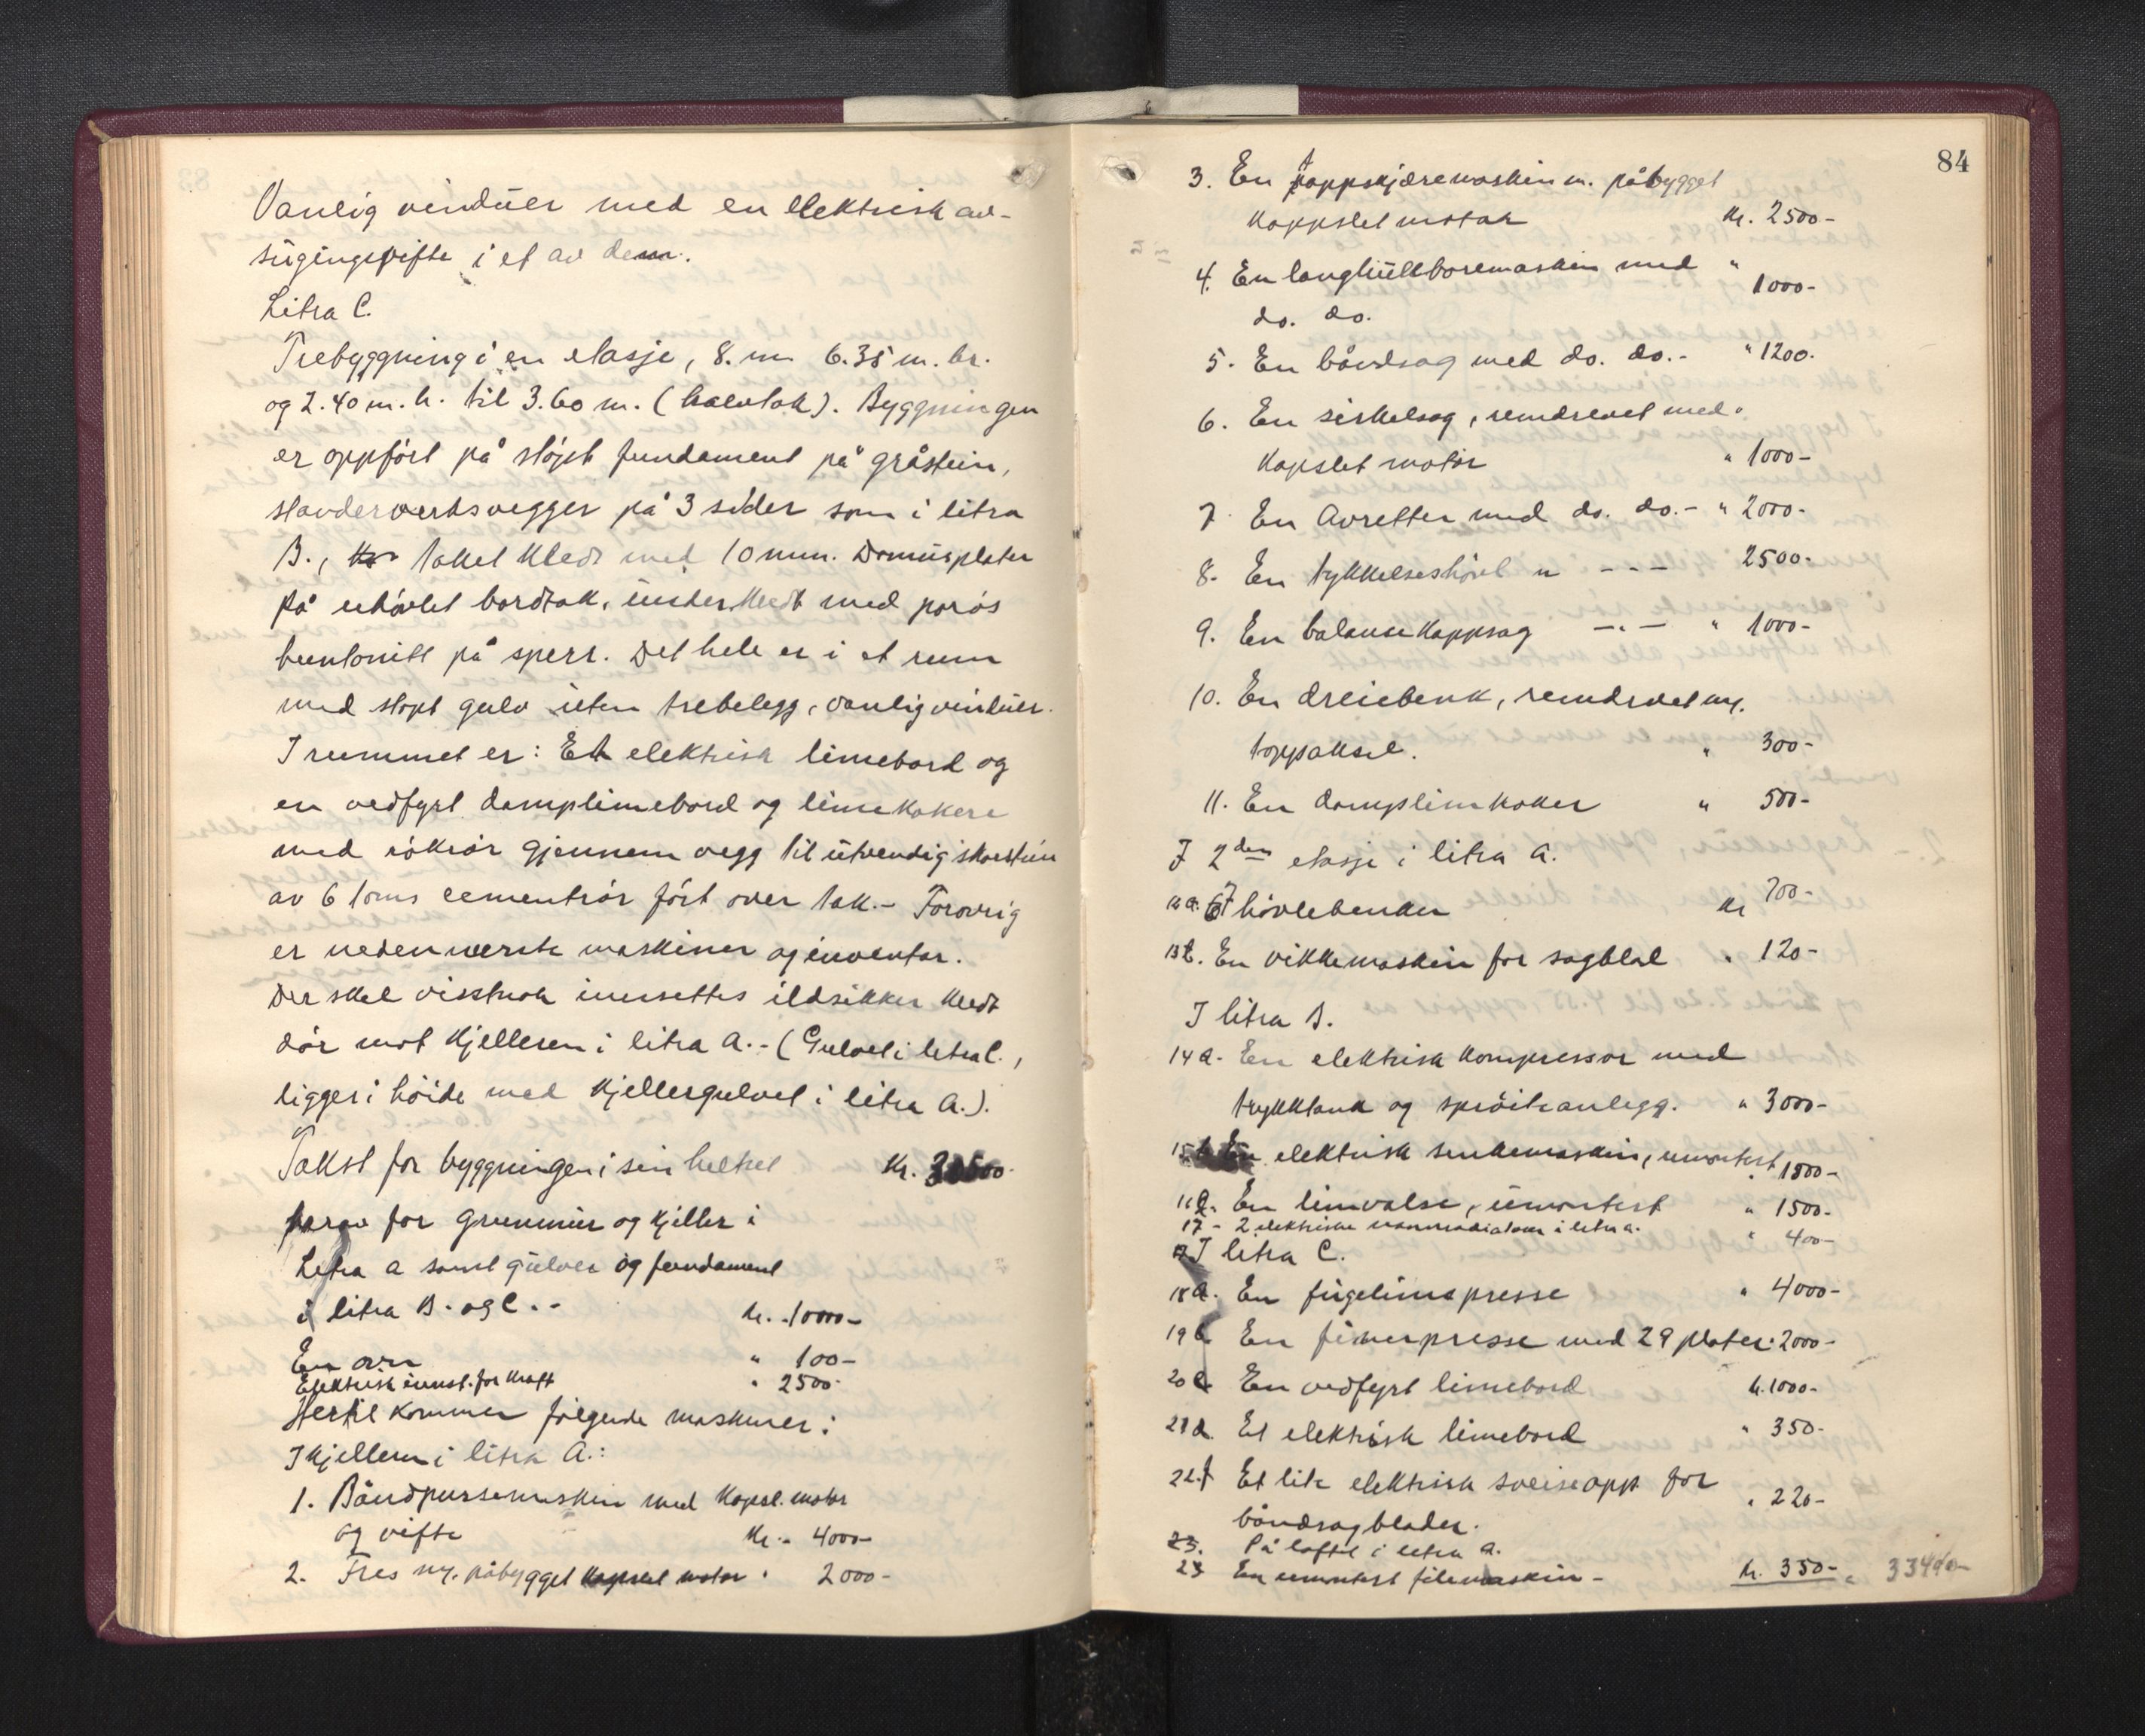 Vanlig vindüer med en elektrisk av-
sügingsvifte i et av dem.
Litra C.
Trebyggning i en etasje, 8. m 6.35 m. br.
og 2.40 m. h. til 3.60 m. (halvtak). Byggningen
er oppfört på stöpt fundament på gråstein,
standerverksvegger på 3 sider som i litra
B., taket kledt med 10 mm. Domüsplater
på uhövlet bordtak, ünderkledt med porös
huntonitt på sperr. Det hele er i et rum
med stöpt gulv üten trebelegg, vanlig vindüer.
I rummet er: Et elektrisk limebord og
en vedfyrt damplimebord og limekokere
med rökrör gjennem vegg til ütvendig skorstein
av 6 toms cementrör fört over tak.- Forövrig
er nedennevnte maskiner og inventar.
Der skal visstnok innsettes ildsikker kledt
dör mot kjelleren i litra A.- (Gulvet i litra C.,
ligger i höide med kjellergulvet i litra A.).
Takst for byggningen i sin helhet kr.
herav for grunnmür og kjeller i
Litra A samt gülver og fundament
i litra B. og C. .- kr. 10000-
En ovn " 100-
Elektrisk innst. for kraft " 2500-
Hertil kommer fölgende maskiner:
I kjelleren i litra A.:
1. Båndpussemaskin med kapsl. motor
og vifte kr. - 4000-
2. Fres m. påbygget kapslet motor " 2000-
84
3. En tappskjæremaskin m. påbygget
kappslet motor kr. 2500-
4. En langhüllboremaskin med "
do. do. 1000-
5. En båndsag med do. do.- " 1200.
6. En sirkelsag, remdrevet med
kapslet motor " 1000-
7. En Avretter med do. do.- " 2000-
8. En tykkelseshövl " - - - 2500-
9. En balansekappsag -"- " 1000-
10. En dreiebenk, remdrevet m.
toppaksel. " 300-
11. En damplimkoker " 500-
I 2den etasje i litra A.
12 a. 7 hövlebenker kr 700-
13 b. En vikkemaskin for sagblad " 120-
I litra B.
14 a. En elektrisk kompressor med
trykktank og spröiteanlegg. " 3000-
15 b En elektrisk sinkemaskin, umontert " 1500-
16 En limvalse, ümontert " 1500-
17 - 2 elektriske i litra A. " 400-
I litra C.
18 a. En fügelimspresse " 4000-
19 b En finerpresse med 29 plater " 2000-
20 c En vedfyrt limebord kr. 1000-
21 d. Et elektrisk limebord " 350-
22. f Et lite elektrisk sveiseapp. for
båndsagblader. " 220-
23. På loftet i litra A.
23 En umontert filemaskin - kr. 350-